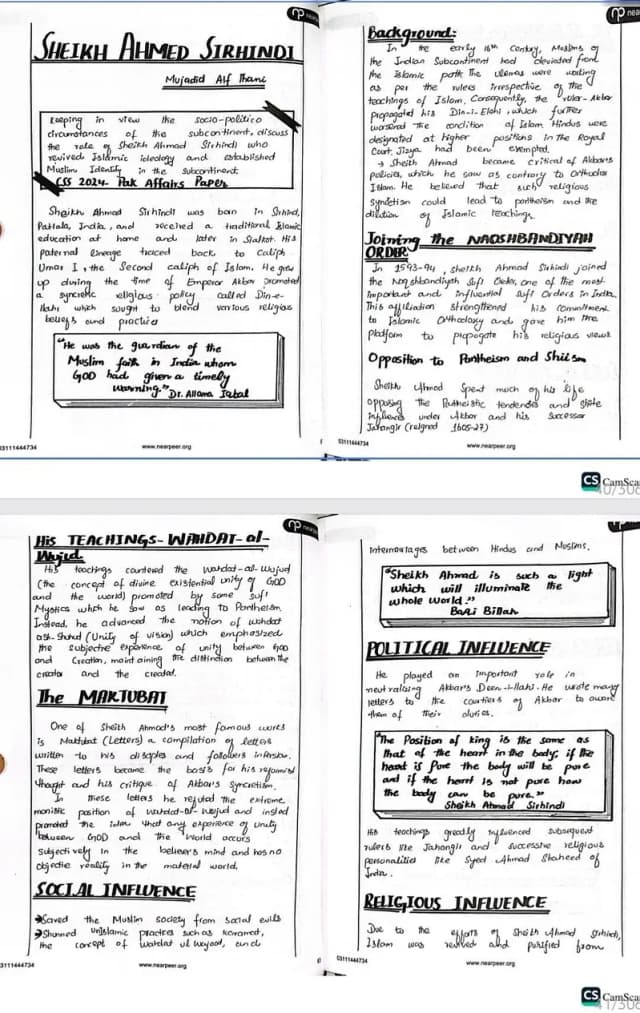 SHEIKH AHMED SIRHINDI
Mujadid Alf Thani
Keeping in view the socio-politico
circumstances of the subcontinent, discuss
the role of Sheikh Ahmad Sirhindi who
revived Islamic ideology and established
Muslim Identity in the Subcontinent.
CSS 2024- Pak Affairs Paper
Sheikh Ahmad Sirhindi was born in Sirhind,
Patiala, India, and received a traditional Islamic
education at home and later in Sialkot. His
paternal lineage traced back to Caliph
Umar I, the Second caliph of Islam. He grew
up during the time of Emperor Akbar promoted
a syncretic religious policy called Din-e-
Ilahi which sought to blend various religious
beliefs and practices
"He was the guardian of the
Muslim faith in India whom
GOD had given a timely
warning." Dr. Allama Iqbal
03111444734
www.nearpeer.org
Background:
In the early 16th Century, Muslims of
the Indian Subcontinent had deviated from
the Islamic path. The ulemas were working
as per the rulers irrespective of the
teachings of Islam. Consequently, the ruler- Akbar
propagated his Din-i-Elahi, which further
worsened the condition of Islam. Hindus were
designated at higher positions in the Royal
Court. Jizya had been exempted.
→ Sheikh Ahmad became critical of Akbar's
policies, which he saw as contrary to Orthodox
Islam. He believed that such religious
syncretism could lead to pantheism and the
dilution of Islamic teachings.
Joining the NAQSHBANDIYAH
ORDER
In 1593-94, sheikh Ahmad Sirhindi joined
the Naqshbandiyah Sufi Order, one of the most
important and influential Sufi Orders in India.
This affiliation strengthened his commitment
to Islamic Orthodoxy and gave him the
platform to propagate his religious views
Opposition to Pantheism and Shiism
Sheikh Ahmad Spent much of his life
opposing the Patheistic tendencies and shiite
influence under Akbar and his Successor
Jahangir (reigned 1605-27)
03111444734
www.nearpeer.org
CS CamSca
40/308
His TEACHINGS- WAHDAT-al-
Wujud
His teachings countered the wahdat-al-wujud
(the concept of divine existential unity of GOD
and the world) promoted by some sufi
Mystics which he saw as leading to Pantheism.
Instead, he advanced the notion of wahdat
ash-Shuhud (Unity of vision) which emphasized
the subjective experience of unity between GOD
and Creation, maintaining the distinction between the
creator and the created.
The MAKTUBAT
One of Sheikh Ahmad's most famous works
is Maktubat (Letters) a compilation of letters
written to his disciples and followers in Persian.
These letters became the basis for his reformist
thought and his critique of Akbar's Syncretism.
In these letters he refuted the extreme
monistic position of wahdat-al-wujud and insted
promoted the idea that any experience of unity
between GOD and the world occurs
subjectively in the believer's mind and has no
objective reality in the material world.
SOCIAL INFLUENCE
→Saved the Muslim society from social evils
→Shunned UnIslamic practices such as
the concept of wahdat ul wujood, and
03111444734
www.nearpeer.org
Intermarriages between Hindus and Muslims.
"Sheikh Ahmad is such a light
which will illuminate the
whole world."
Baqi Billah
POLITICAL INFLUENCE
He played an important role in
neutralizing Akbar's Deen-i-Ilahi. He wrote many
letters to the courtiers of Akbar to aware
them of their duties.
"The Position of king is the same as
that of the heart in the body; if the
heart is Pure the body will be pure
and if the heart is not pure how
the body can be pure."
Sheikh Ahmad Sirhindi
His teachings greatly influenced subsequent
rulers like Jahangir and successive religious
personalities like Syed Ahmad Shaheed of
India.
RELIGIOUS INFLUENCE
Due to the efforts of Sheikh Ahmad Sirhindi,
Islam was revived and purified from
03111444734
www.nearpeer.org
CS CamSca
41/308